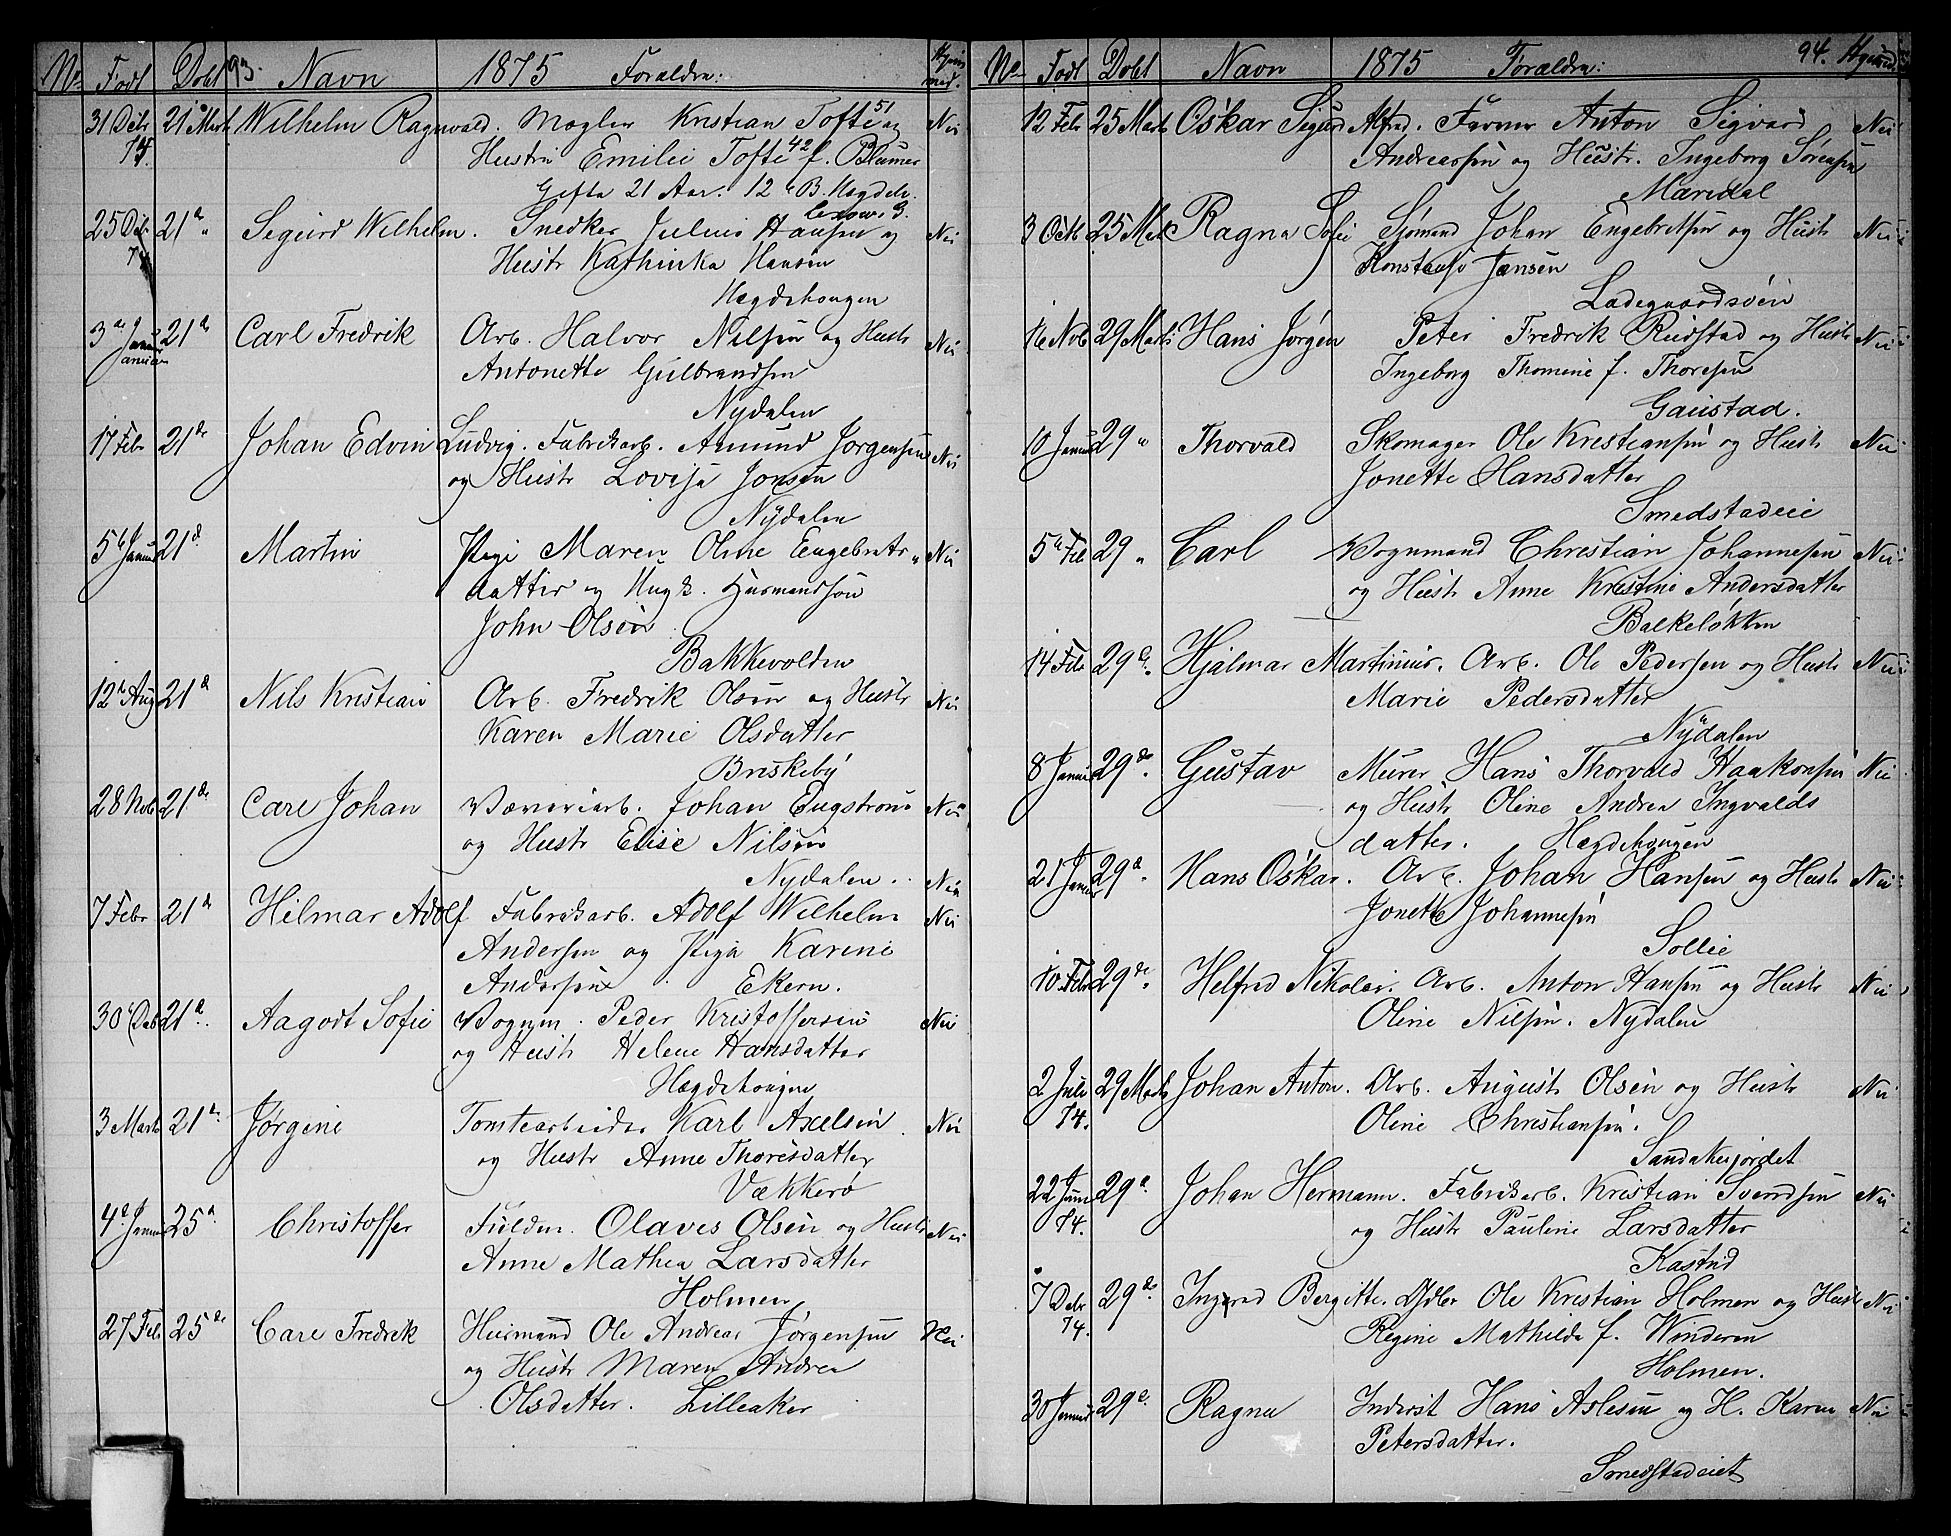 No Født Døbt 93. Navn 1875 Forældre:
31 Debr 21 Marts Wilhelm Ragnvald. Mægler Kristian Tofte 51 og Nei
74. Hustru Emilie Tofte 42 f. Blumer
Gifte 21 Aar. 12 B. Hægdeh.
25 Debr 21 d. Sigurd Wilhelm. Snedker Julius Hansen og Nei
Hustr Kathinka Hansen
Hægdehougen
3 de Januar 21 de Carl Fredrik Arb. Halvor Nilsen og Hustr Nei
Januar Antonette Gulbrandsen
Nydalen
17 Febr 21 de Johan Edvin Ludvig. Fabrikarb. Amund Jørgensen Nei
og Hustr Lovise Jonsen
Nydalen
5 te Januar 21 d. Martin Pige Maren Oline Engebrets- Nei
datter og Ungk. Husmandssøn
John Olsen
Bakkevolden
12 te Aug 21 d Nils Kristian Arb. Fredrik Olsen og Hustr Nei
Karen Marie Olsdatter
Briskeby
28 Nob 21 de Carl Johan Væveriarb. Johan Engstrøm Nei
og Hustr Elise Nilsen
Nydalen. Nei
7 Febr 21 de Hilmar Adolf Fabrikarb. Adolf Wilhelm Nei
Andersen og Pige Karine
Andersen Ekern.
30 Deb 21 d. Aagodt Sofie Vognm. Peder Kristoffersen Nei
og Hustr Helene Hansdatter
Hægdehougen
3 Marts 21 d. Jørgine Tomtearbeider Karl Axelsen Nei
og Hustr Anne Thoresdatter
Vækkerø
4 d. Januar 25 d. Christoffer Fuldm. Olaves Olsen og Hustr Nei
Anne Mathea Larsdatter
Holmen
27 Feb 25 de Carl Fredrik Husmand Ole Andreas Jørgensen Nei
og Hustr Maren Andrea
Olsdatter. Lilleaker
No Født Døbt Navn 1875 Forældre: 94.
12 Febr 25 Marts Oskar Sigurd Alfred. Farver Anton Sigvard Nei
Andreassen og Hustr. Ingeborg Sørensen
Maridal
3 Octb 25 Marts Ragna Sofie Sjømand Johan Engebretsen og Hustr Nei
Konstanse Jansen
Ladegaardsøen
16 Nob 29 Marts Hans Jørgen Peter Fredrik Rudstad og Hustr Nei
Ingeborg Thomine f. Thoresen
Gaustad.
10 Januar 29 " Thorvald Skomager Ole Kristiansen og Hustr Nei
Jonette Hansdatter
Smedstadeie
5 te Feb 29 " Carl Vognmand Christian Johannesen Nei
og Hustr Anne Kristine Andersdatter
Balkeløkken
14 Feb 29 d. Hjalmar Martinius. Arb. Ole Pedersen og Hustr Nei
Marie Pedersdatter
Nydalen
8 Januar 29 de. Gustav Murer Hans Thorvald Haakonsen Nei
og Hustr Oline Andrea Ingvalds
datter. Hægdehougen
21 Januar 29 d. Hans Oskar. Arb. Johan Hansen og Hustr Nei
Jonette Johannesen
Sollie
10 Febr 29 de. Helfred Nikolai. Arb. Anton Hansen og Hustr Nei
Oline Nilsen. Nydalen
2 Juli 29 Marts Johan Anton. Arb. August Olsen og Hustr Nei
74. Oline Christiansen.
Sandakerjordet
22 Juni 29 d. Johan Hermann. Fabrikarb. Kristian Svendsen Nei
74. og Hustr Pauline Larsdatter
Kastrud
7 Debr 29 de. Ingerad Bergitte. Gdbr Ole Kristian Holmen og Hustr Nei
74. Regine Mathilde f. Winderen
Holmen.
30 Januar 29 d. Ragna Inderst Hans Aslesen og H. Karen Nei
Petersdatter.
Smedstadeiet